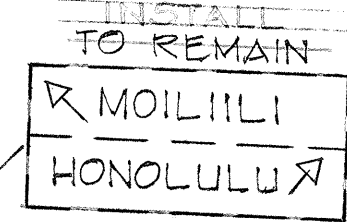 INSTALL
TO REMAIN
MOILIILI
HONOLULU